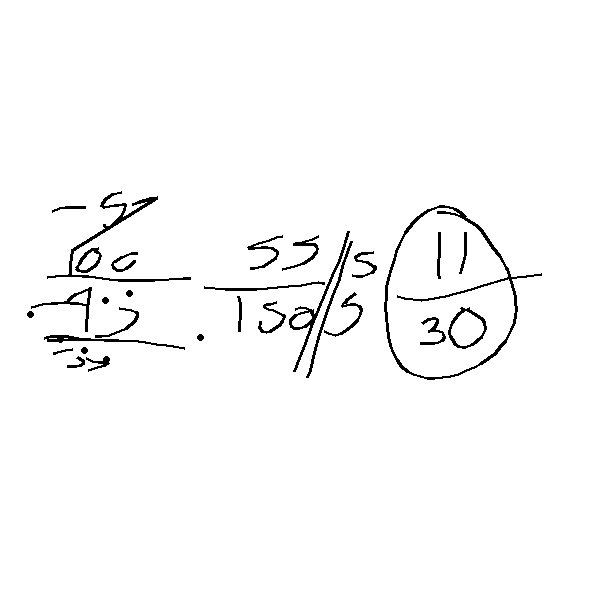 - 5
100
- 45
- 55
55/150 // 5/5 11/30